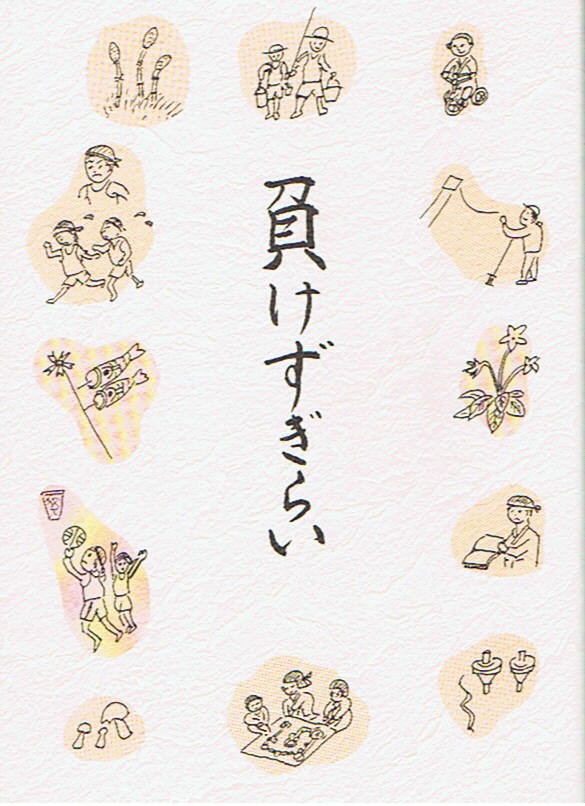 負けずぎらい